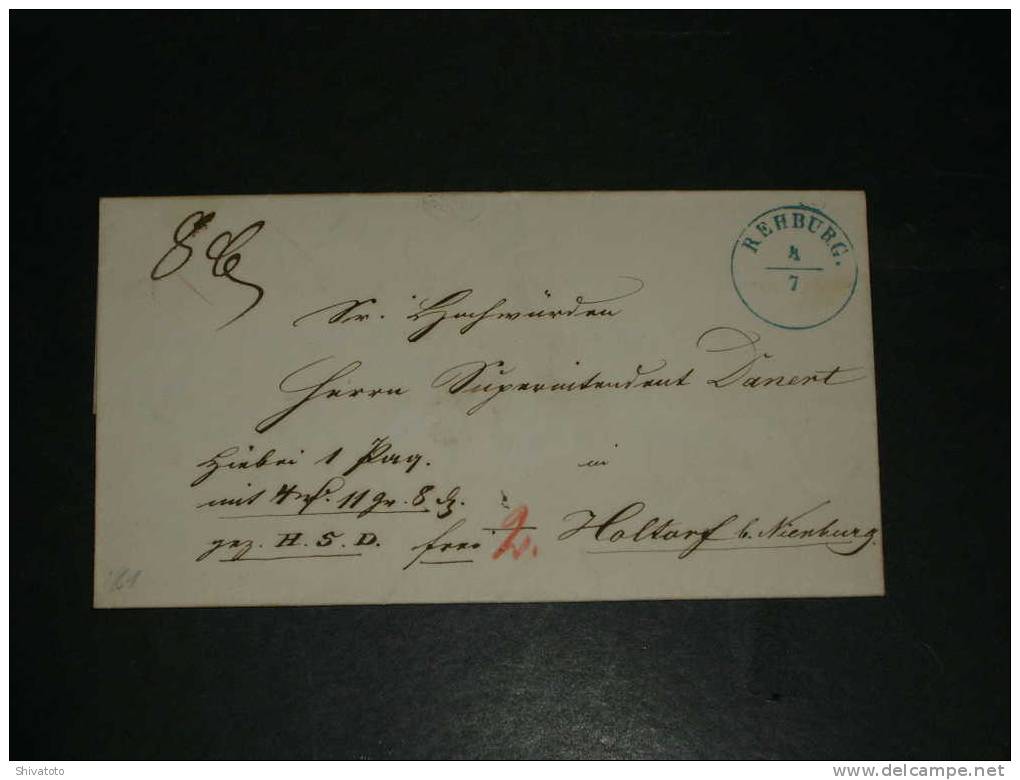 REHBURG.
4
7
Sr. Hochwürden
Herrn Superintendent Danert
Hiebei 1 Paq.
in
mit 4 rℓ. 11 gr. 8 d.
gez. H. S. D. frei 2. Holtorf b. Nienburg.
Shivatoto
www.delcampe.net